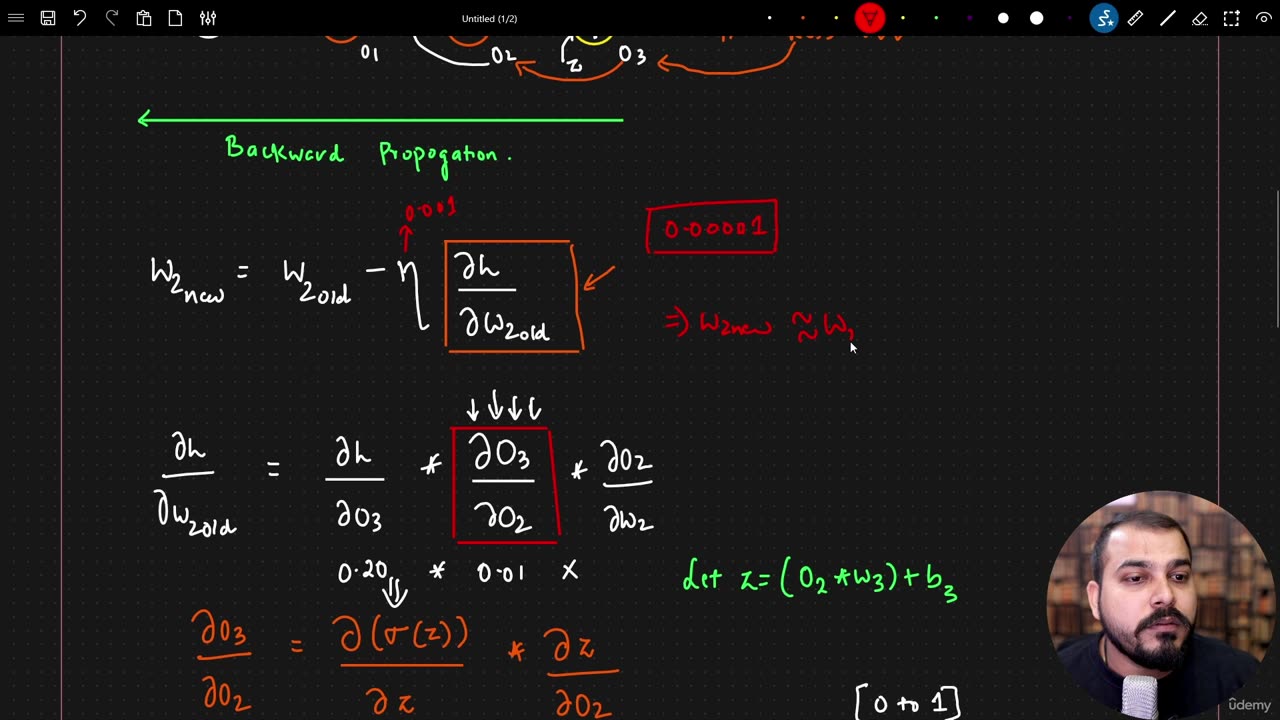 Untitled (1/2)
O1 O2 z O3
Backward Propogation.
0.001
0.00001
W2new = W2old - η ∂h/∂w2old
=> W2new ≈ W2
∂h/∂w2old = ∂h/∂O3 * ∂O3/∂O2 * ∂O2/∂w2
0.20 * 0.01 x
Let z = (O2 * w3) + b3
∂O3/∂O2 = ∂(σ(z))/∂z * ∂z/∂O2
[0 to 1]
ûdemy